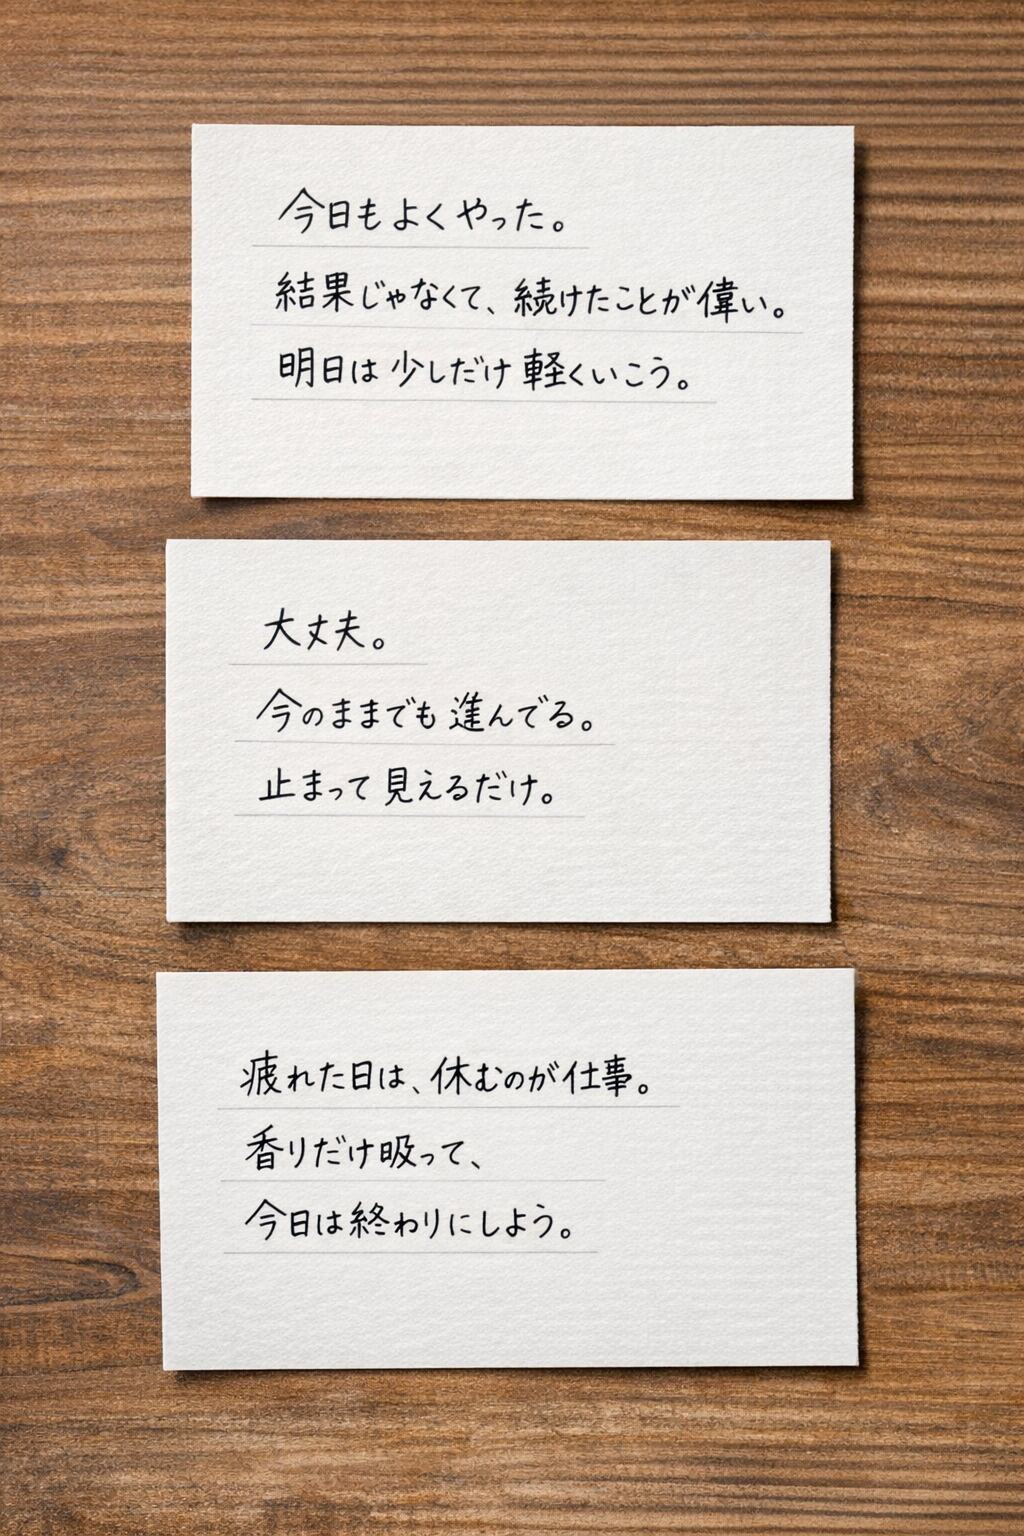 今日もよくやった。
結果じゃなくて、続けたことが偉い。
明日は少しだけ軽くいこう。
大丈夫。
今のままでも進んでる。
止まって見えるだけ。
疲れた日は、休むのが仕事。
香りだけ吸って、
今日は終わりにしよう。